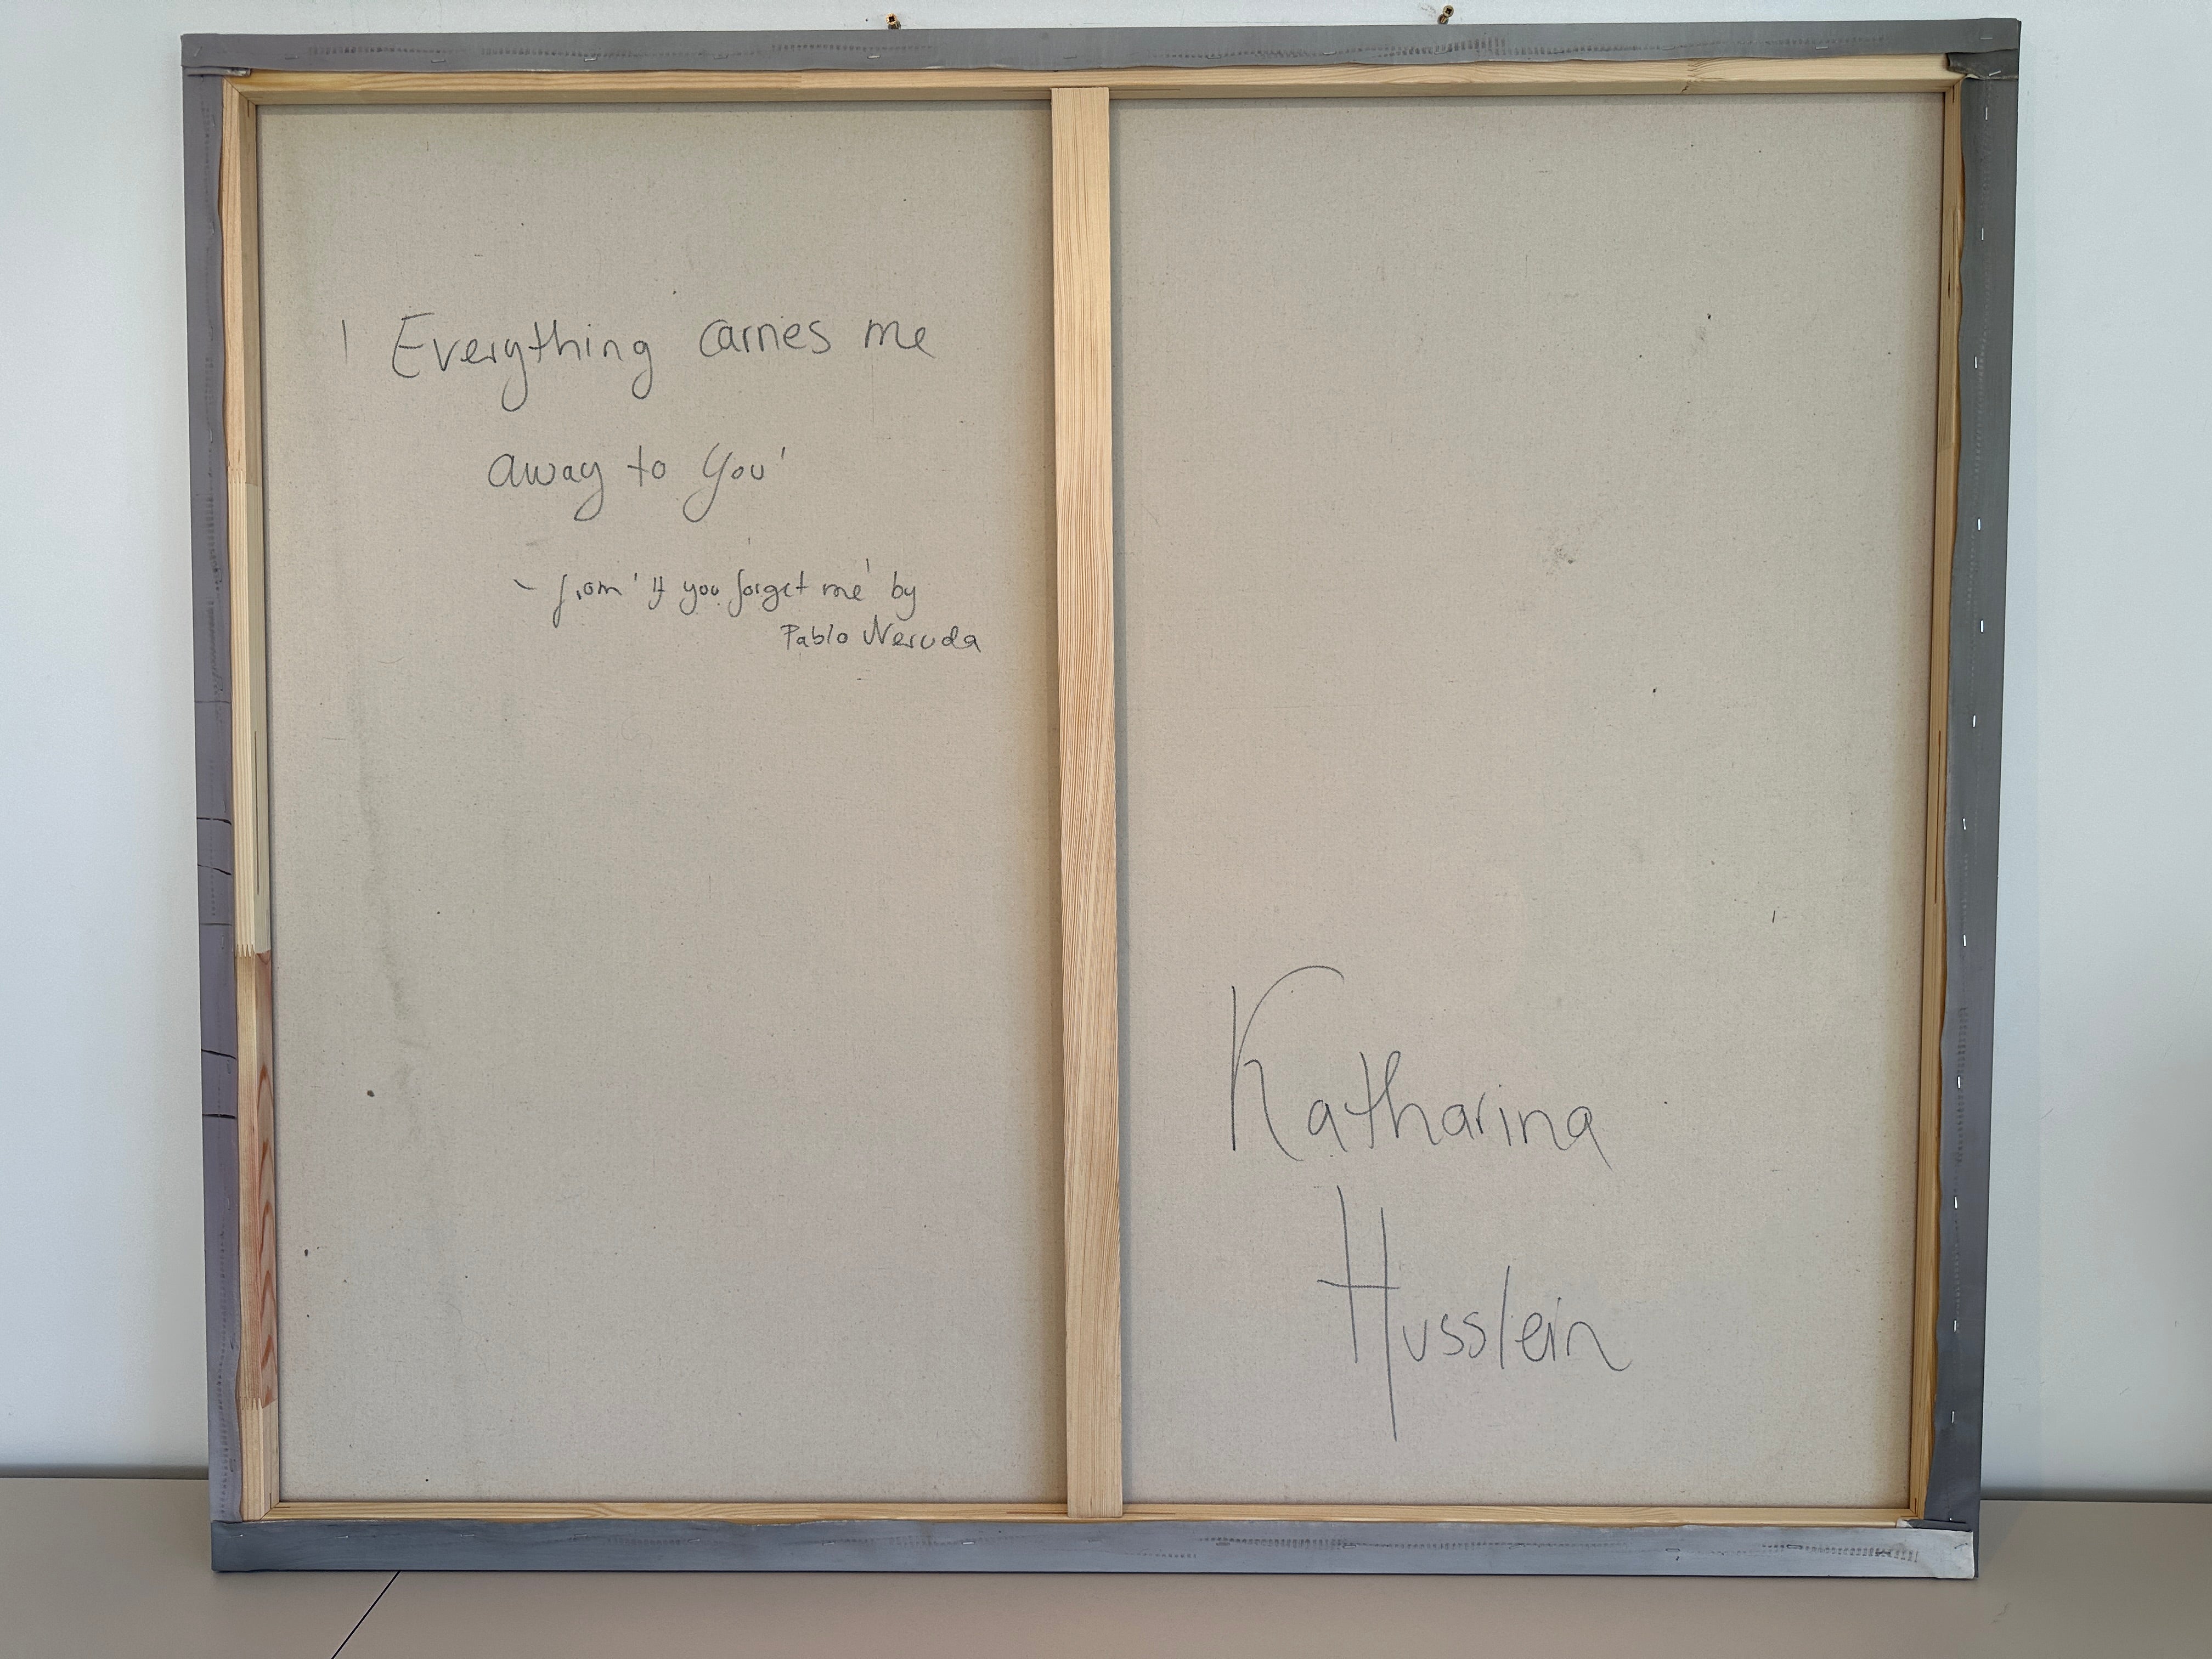 'Everything carries me
away to you'
- from 'If you forget me' by
Pablo Neruda
Katharina
Husslein